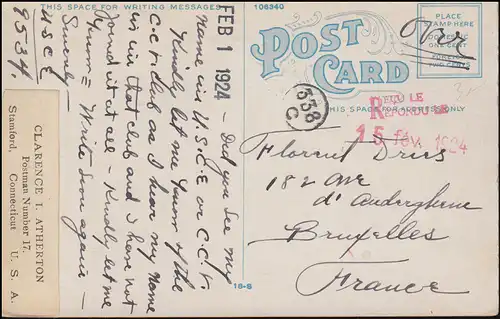 THIS SPACE FOR WRITING MESSAGES
106340
POST CARD
PLACE
STAMP HERE
DOMESTIC
ONE CENT
THIS SPACE FOR ADDRESS ONLY
FEB 1 1924
338
C
REÇU LE
1924
— Did you see my
Name in U.S.C.E or C.C.K.
Kindly let me know if the
C.C.K. Club as I hear my Name
is in that club and I have not
Joined it at all — Kindly let me
Know = Write Soon again —
U.S.C.E
8534.
CLARENCE T. ATHERTON
Postman Number 17.
Stamford, Connecticut
U. S. A.
18-S
Florent
182 Ave
d'Auderghem
Bruxelles
France